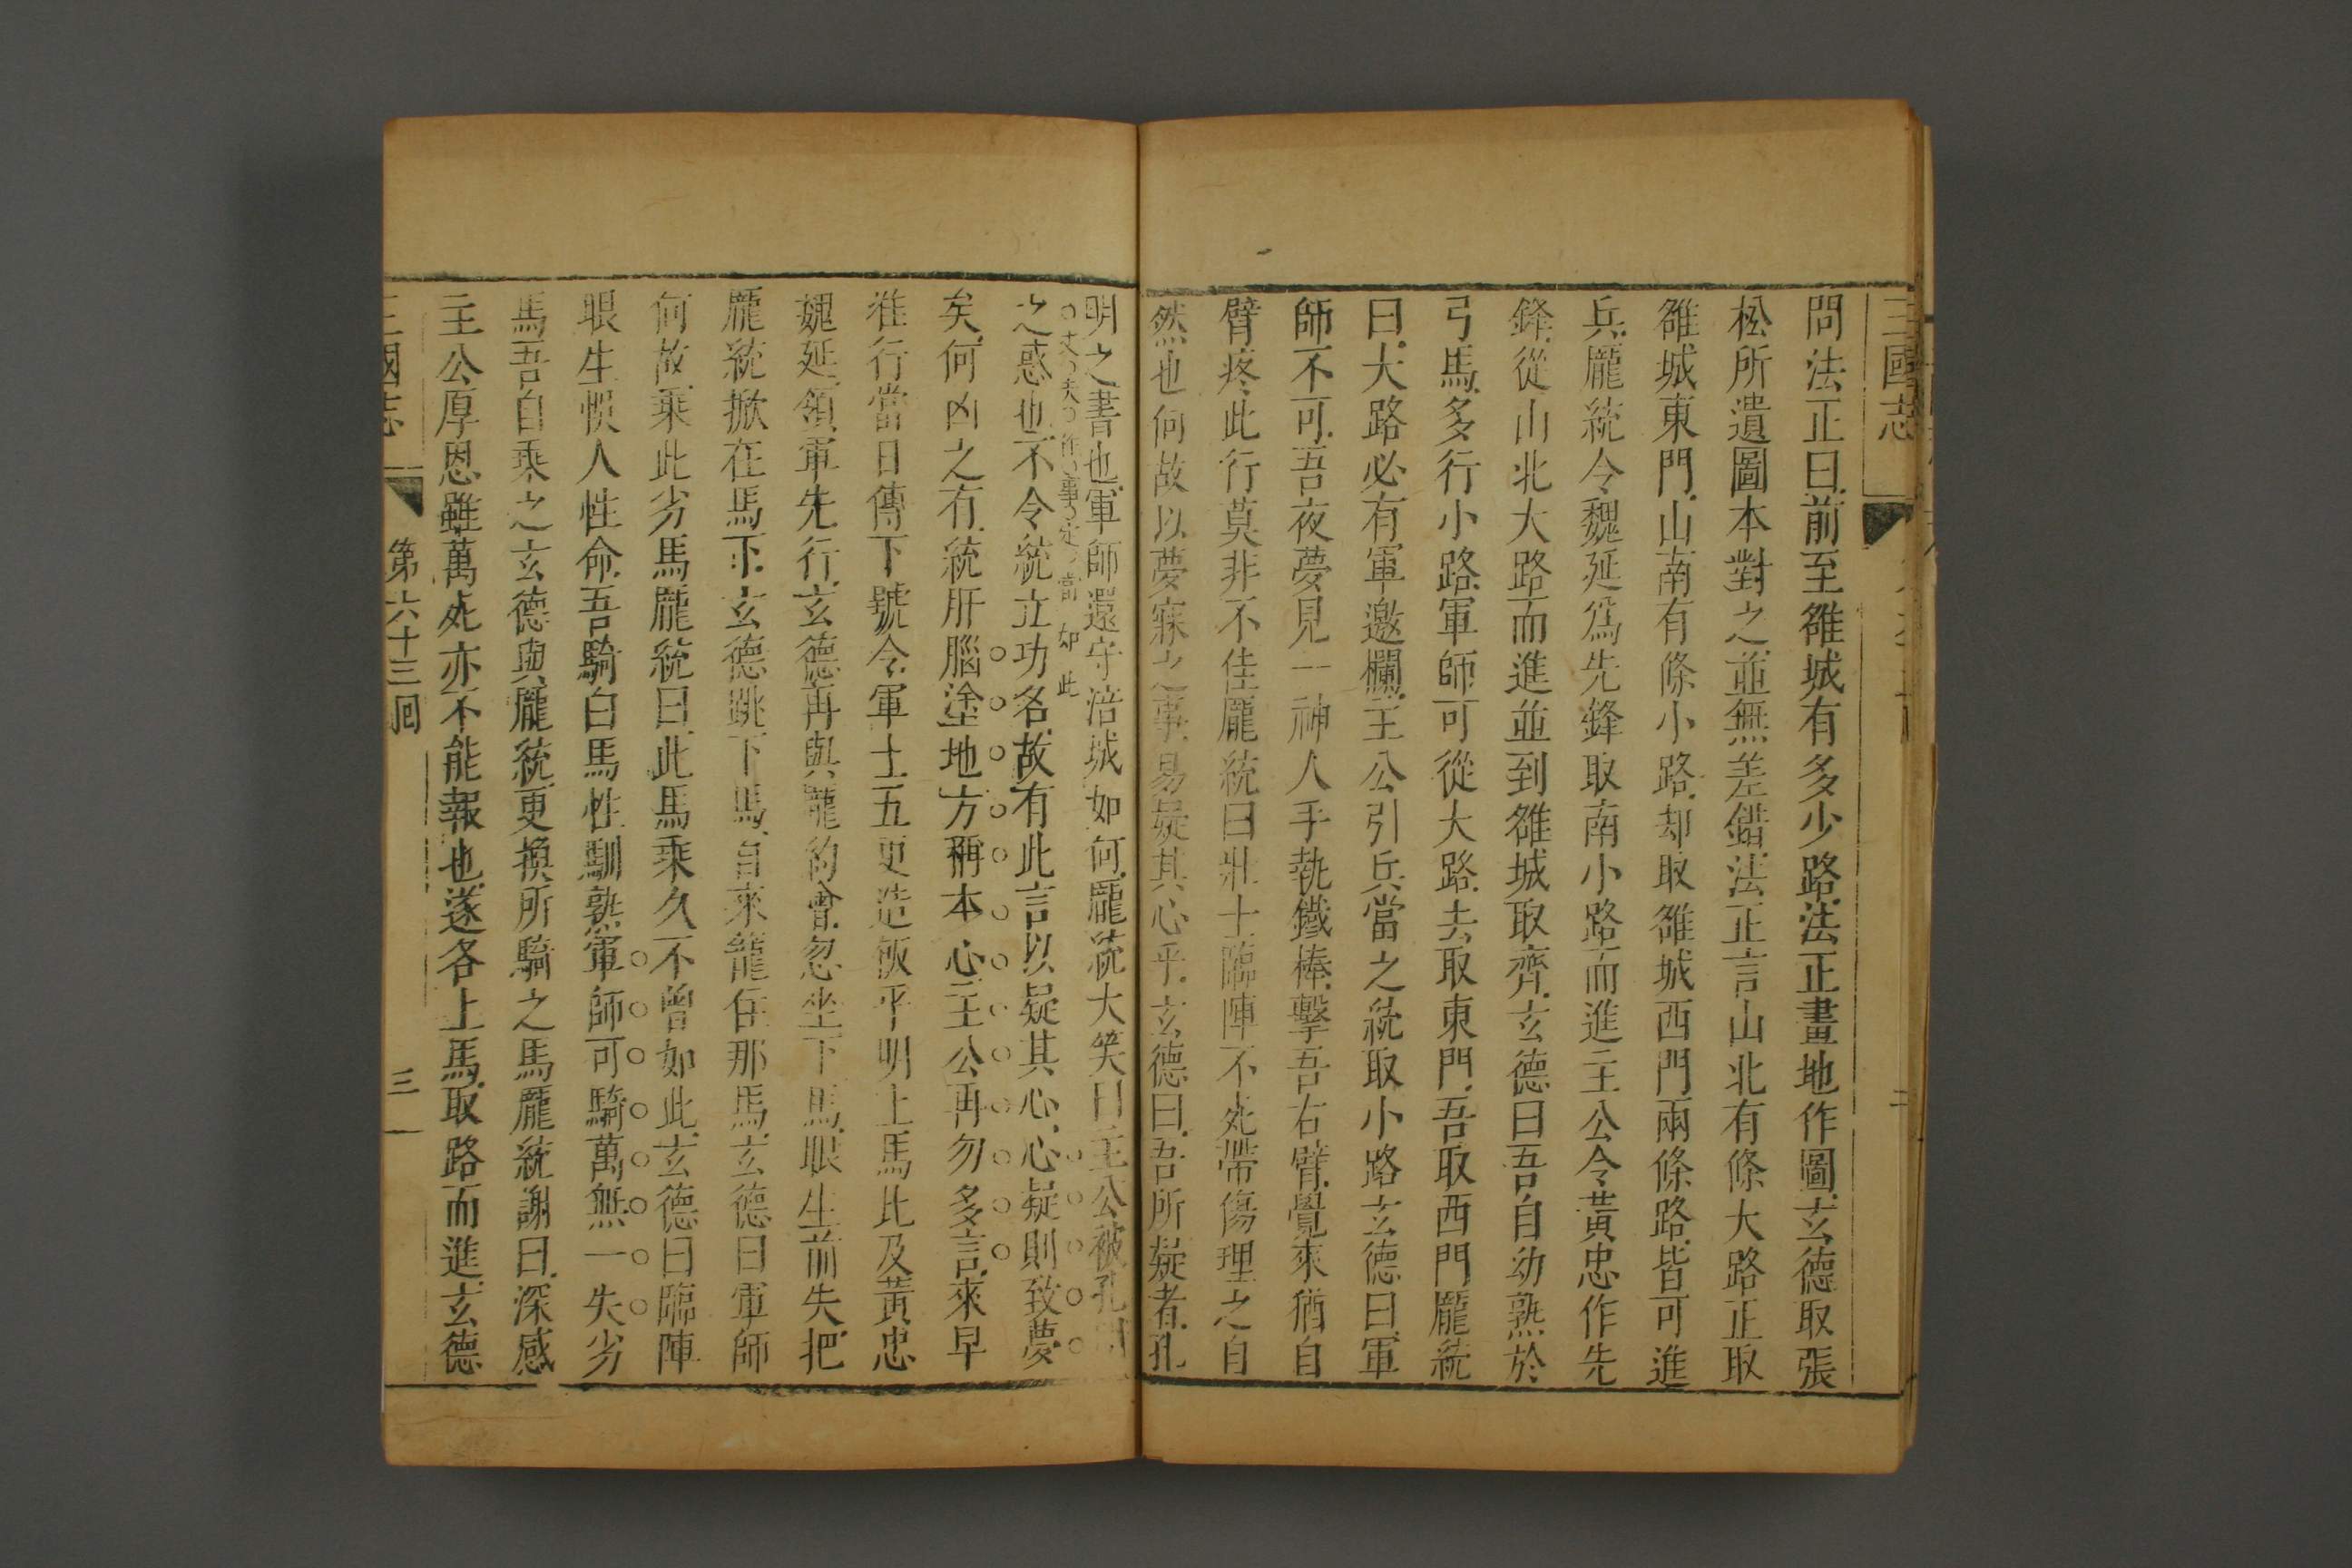 三國志
二
問法正曰前至雒城有多少路法正畫地作圖玄德取張
松所遺圖本對之並無差錯法正言山北有條大路正取
雒城東門山南有條小路却取雒城西門兩條路皆可進
兵龐統令魏延為先鋒取南小路而進主公令黃忠作先
鋒從山北大路而進並到雒城取齊玄德曰吾自幼熟於
弓馬多行小路軍師可從大路去取東門吾取西門龐統
曰大路必有軍邀攔主公引兵當之統取小路玄德曰軍
師不可吾夜夢見一神人手執鐵棒擊吾右臂覺來猶自
臂疼此行莫非不佳龐統曰壯士臨陣不死帶傷理之自
然也何故以夢寐之事易疑其心乎玄德曰吾所疑者孔
明之書也軍師還守涪城如何龐統大笑曰主公被孔明
丈夫作事定當如此
之惑也不令統立功名故有此言以疑其心心疑則致夢
矣何凶之有統肝腦塗地方稱本心主公再勿多言來早
准行當日傳下號令軍士五更造飯平明上馬比及黃忠
魏延領軍先行玄德再與龐約會忽坐下馬眼生前失把
龐統掀在馬下玄德跳下馬自來籠住那馬玄德曰軍師
何故乘此劣馬龐統曰此馬乘久不曾如此玄德曰臨陣
眼生悞人性命吾騎白馬性馴熟軍師可騎萬無一失劣
馬吾自乘之玄德與龐統更換所騎之馬龐統謝曰深感
主公厚恩雖萬死亦不能報也遂各上馬取路而進玄德
三國志
第六十三回
三